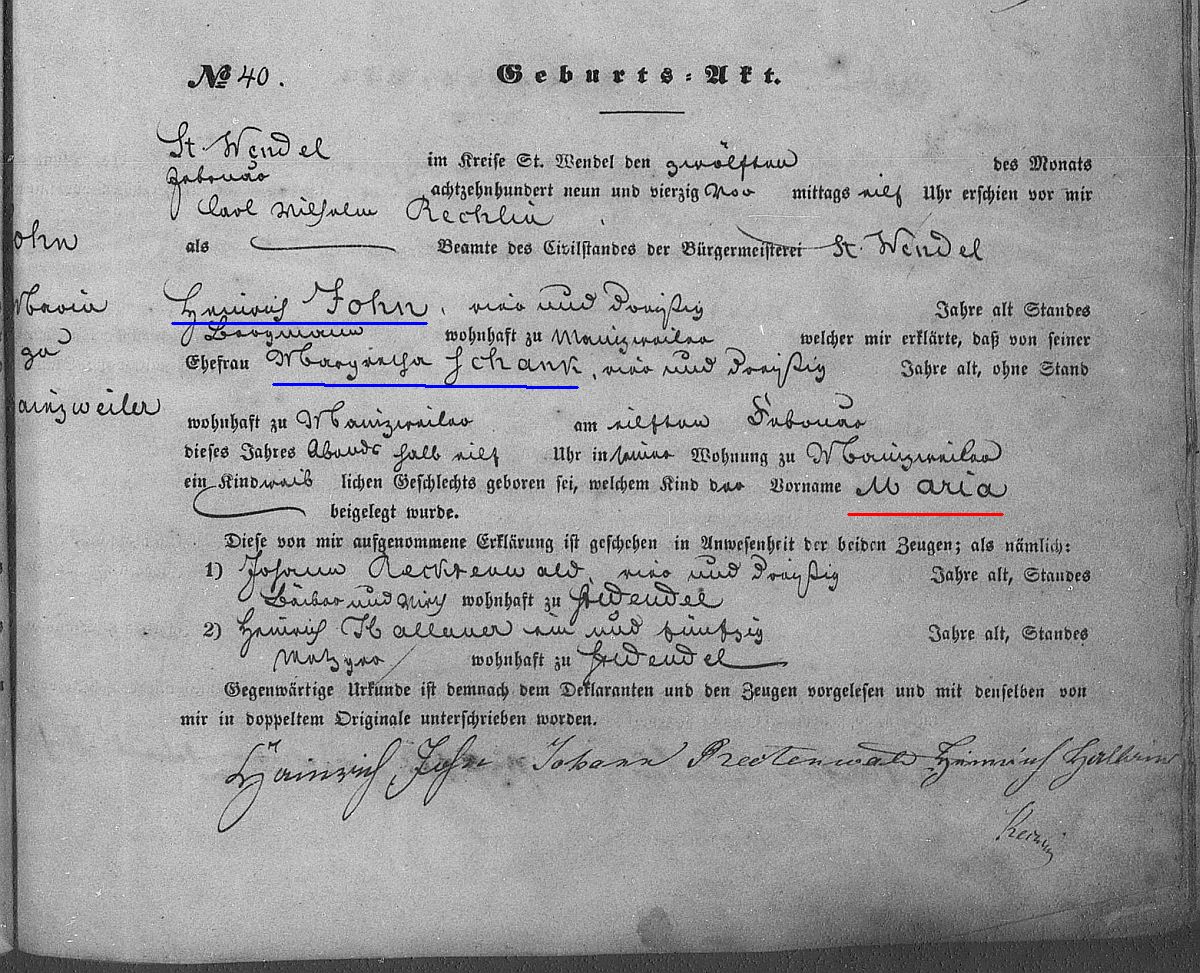 № 40. Geburts-Akt.
St. Wendel im Kreise St. Wendel den zwölften des Monats
Februar achtzehnhundert neun und vierzig Vor mittags eilf Uhr erschien vor mir
Carl Wilhelm Rechlin
ohn
als Beamte des Civilstandes der Bürgermeisterei St. Wendel
Maria
Heinrich John, vier und dreißig Jahre alt Standes
Bergmann wohnhaft zu Mainzweiler welcher mir erklärte, daß von seiner
zu
Ehefrau Margretha Schank, vier und dreißig Jahre alt, ohne Stand
ainzweiler
wohnhaft zu Mainzweiler am eilften Februar
dieses Jahres Abends halb eilf Uhr in seiner Wohnung zu Mainzweiler
ein Kind weib lichen Geschlechts geboren sei, welchem Kind der Vorname Maria
beigelegt wurde.
Diese von mir aufgenommene Erklärung ist geschehen in Anwesenheit der beiden Zeugen; als nämlich:
1) Johann Recktenwald, vier und dreißig Jahre alt, Standes
Bäcker und Wirth wohnhaft zu St Wendel
2) Heinrich Hallauer ein und fünfzig Jahre alt, Standes
Metzger wohnhaft zu St Wendel
Gegenwärtige Urkunde ist demnach dem Deklaranten und den Zeugen vorgelesen und mit denselben von
mir in doppeltem Originale unterschrieben worden.
Hainrich John Johann Rectenwald Heinrich